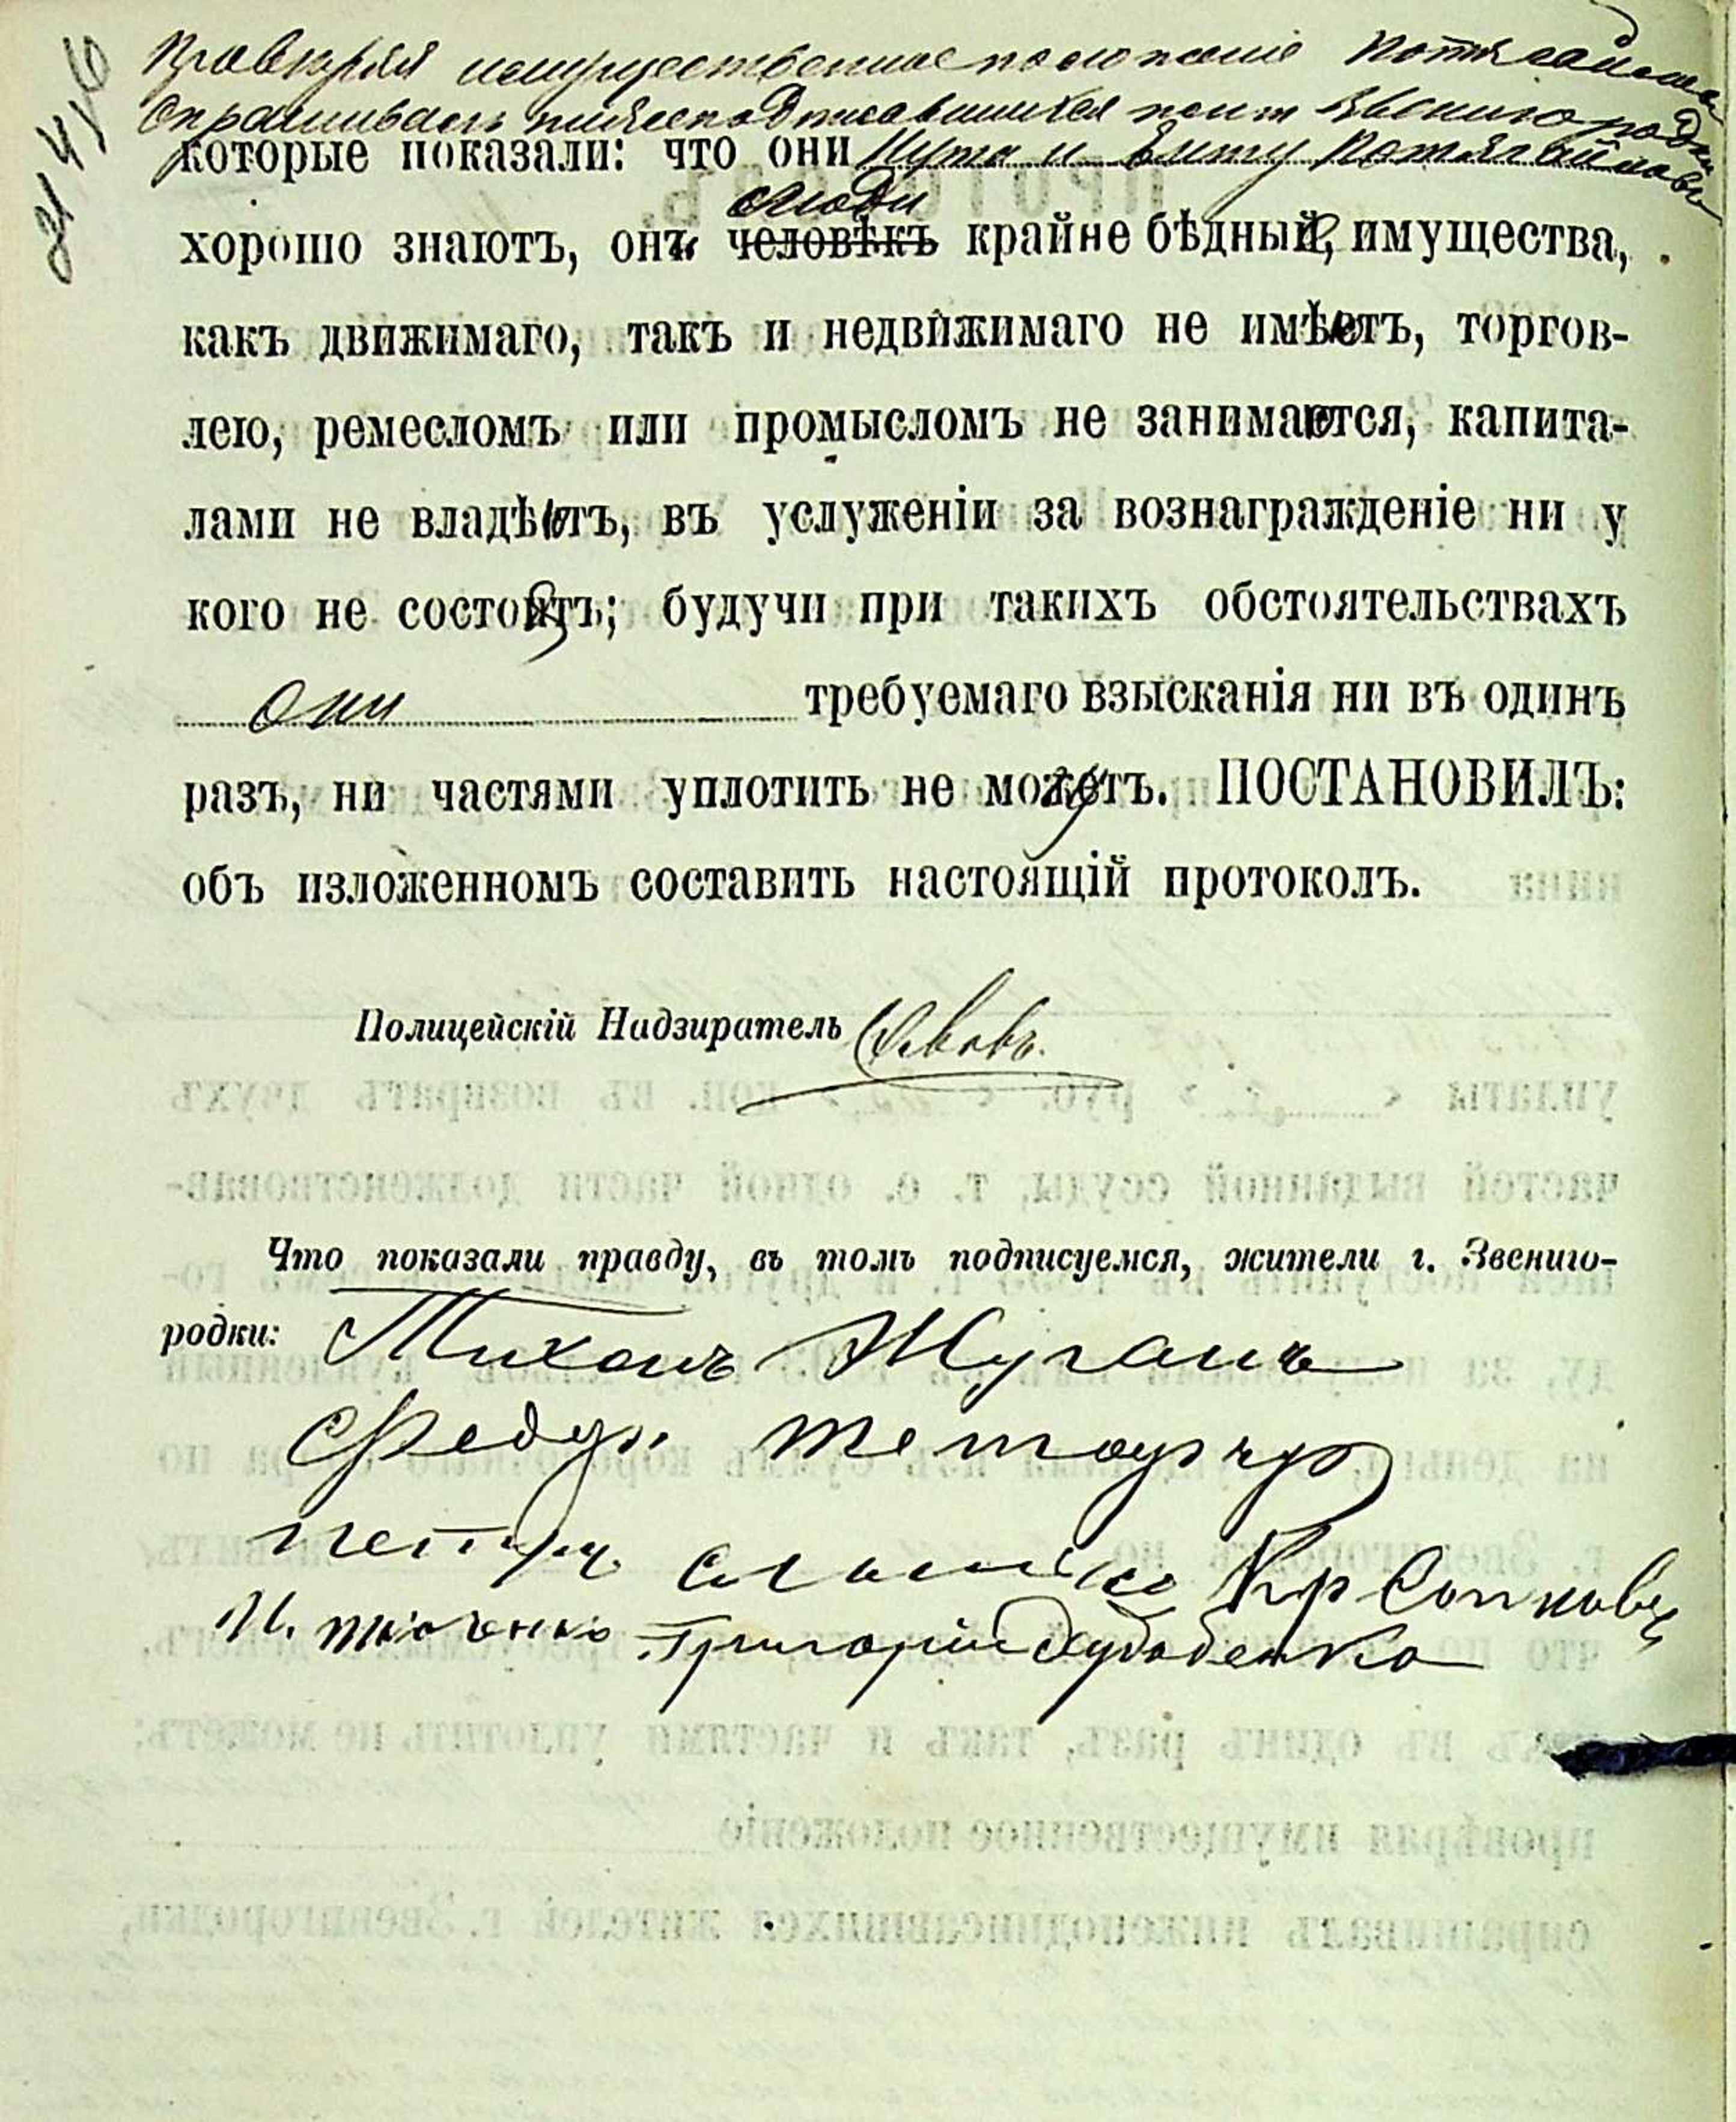 Провѣряя имущественное положеніе
спрашивалъ нижеподписавшихся жит Звенигородки
которые показали: что они и
хорошо знаютъ, они люди человѣкъ крайне бѣдные, имущества,
какъ движимаго, такъ и недвижимаго не имѣютъ, торгов-
лею, ремесломъ или промысломъ не занимаются, капита-
лами не владѣютъ, въ услуженіи за вознагражденіе ни у
кого не состоятъ; будучи при такихъ обстоятельствахъ
они требуемаго взысканія ни въ одинъ
разъ, ни частями уплотить не могутъ. ПОСТАНОВИЛЪ:
объ изложенномъ составить настоящій протоколъ.
Полицейскій Надзиратель
Что показали правду, въ томъ подписуемся, жители г. Звениго-
родки: Тихонъ Журанъ
Федуръ
Петръ
Григорій Худобенко